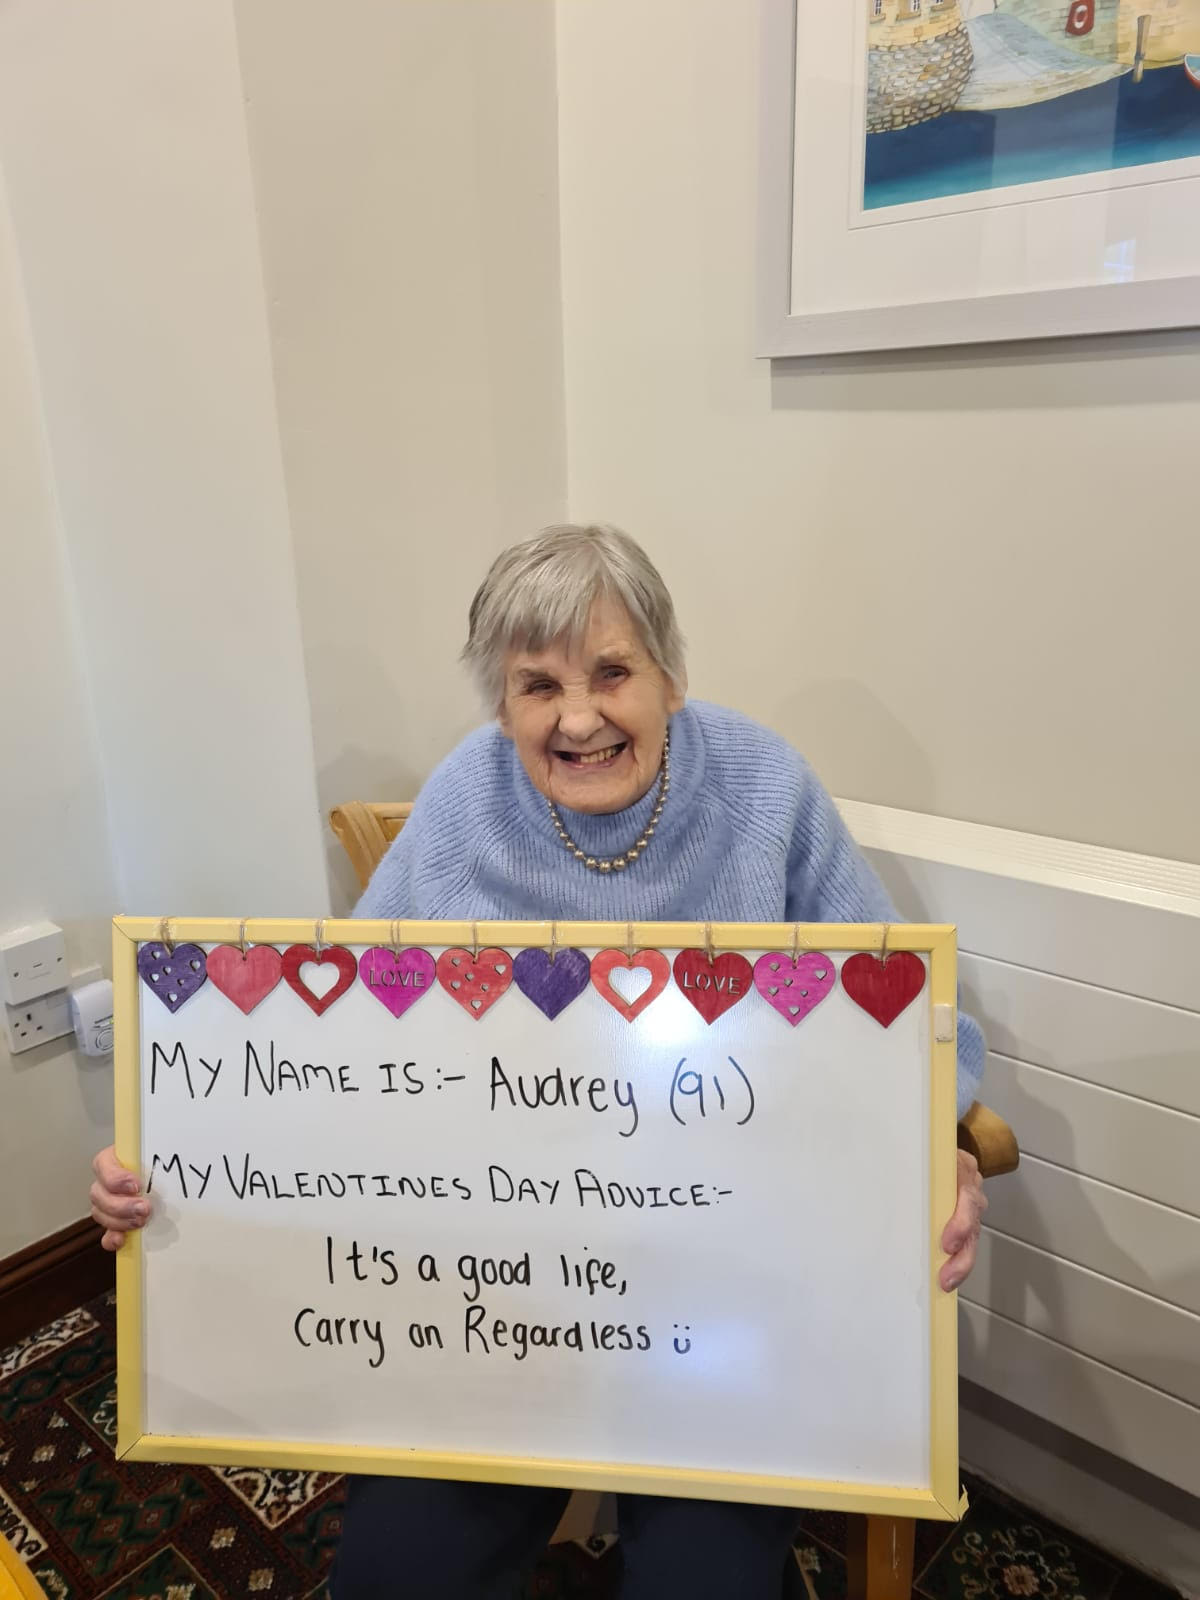 LOVE LOVE
My NAME IS:- Audrey (91)
MY VALENTINES DAY ADVICE:-
It's a good life,
Carry on Regardless ü